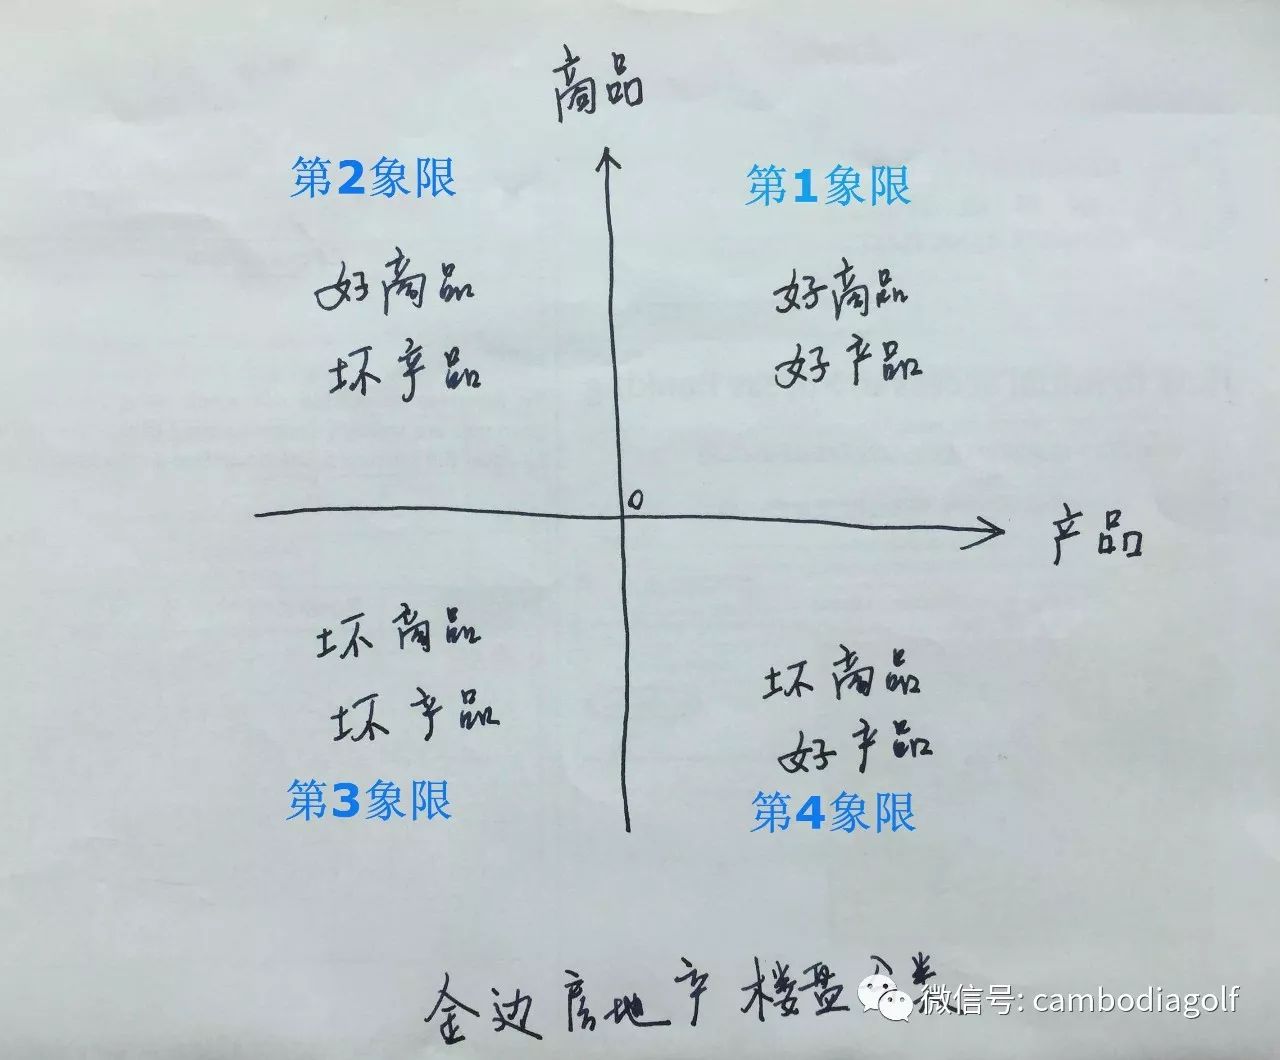 商品
第2象限
第1象限
好商品
坏产品
好商品
好产品
0
产品
坏商品
坏产品
第3象限
坏商品
好产品
第4象限
金边房地产楼盘分类
微信号: cambodiagolf